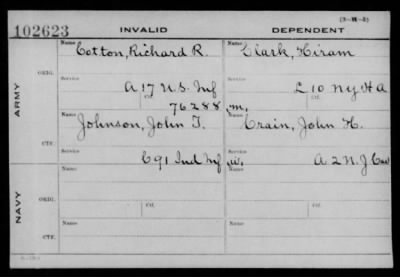 (3-M-5)
102623 INVALID DEPENDENT
Name Cotton, Richard R. Name Clark, Hiram
ARMY ORIG. Service A 17 U.S. Inf Service L 10 NY H A
Ctf. 76288 Ctf.
Name Johnson, John T. m. Name Crain, John H.
CTF. Service C 91 Ind Inf w. Service A 2 N.J Cav
Name Name
NAVY ORIG. Service Ctf. Service Ctf.
Name Name
CTF. Service Service